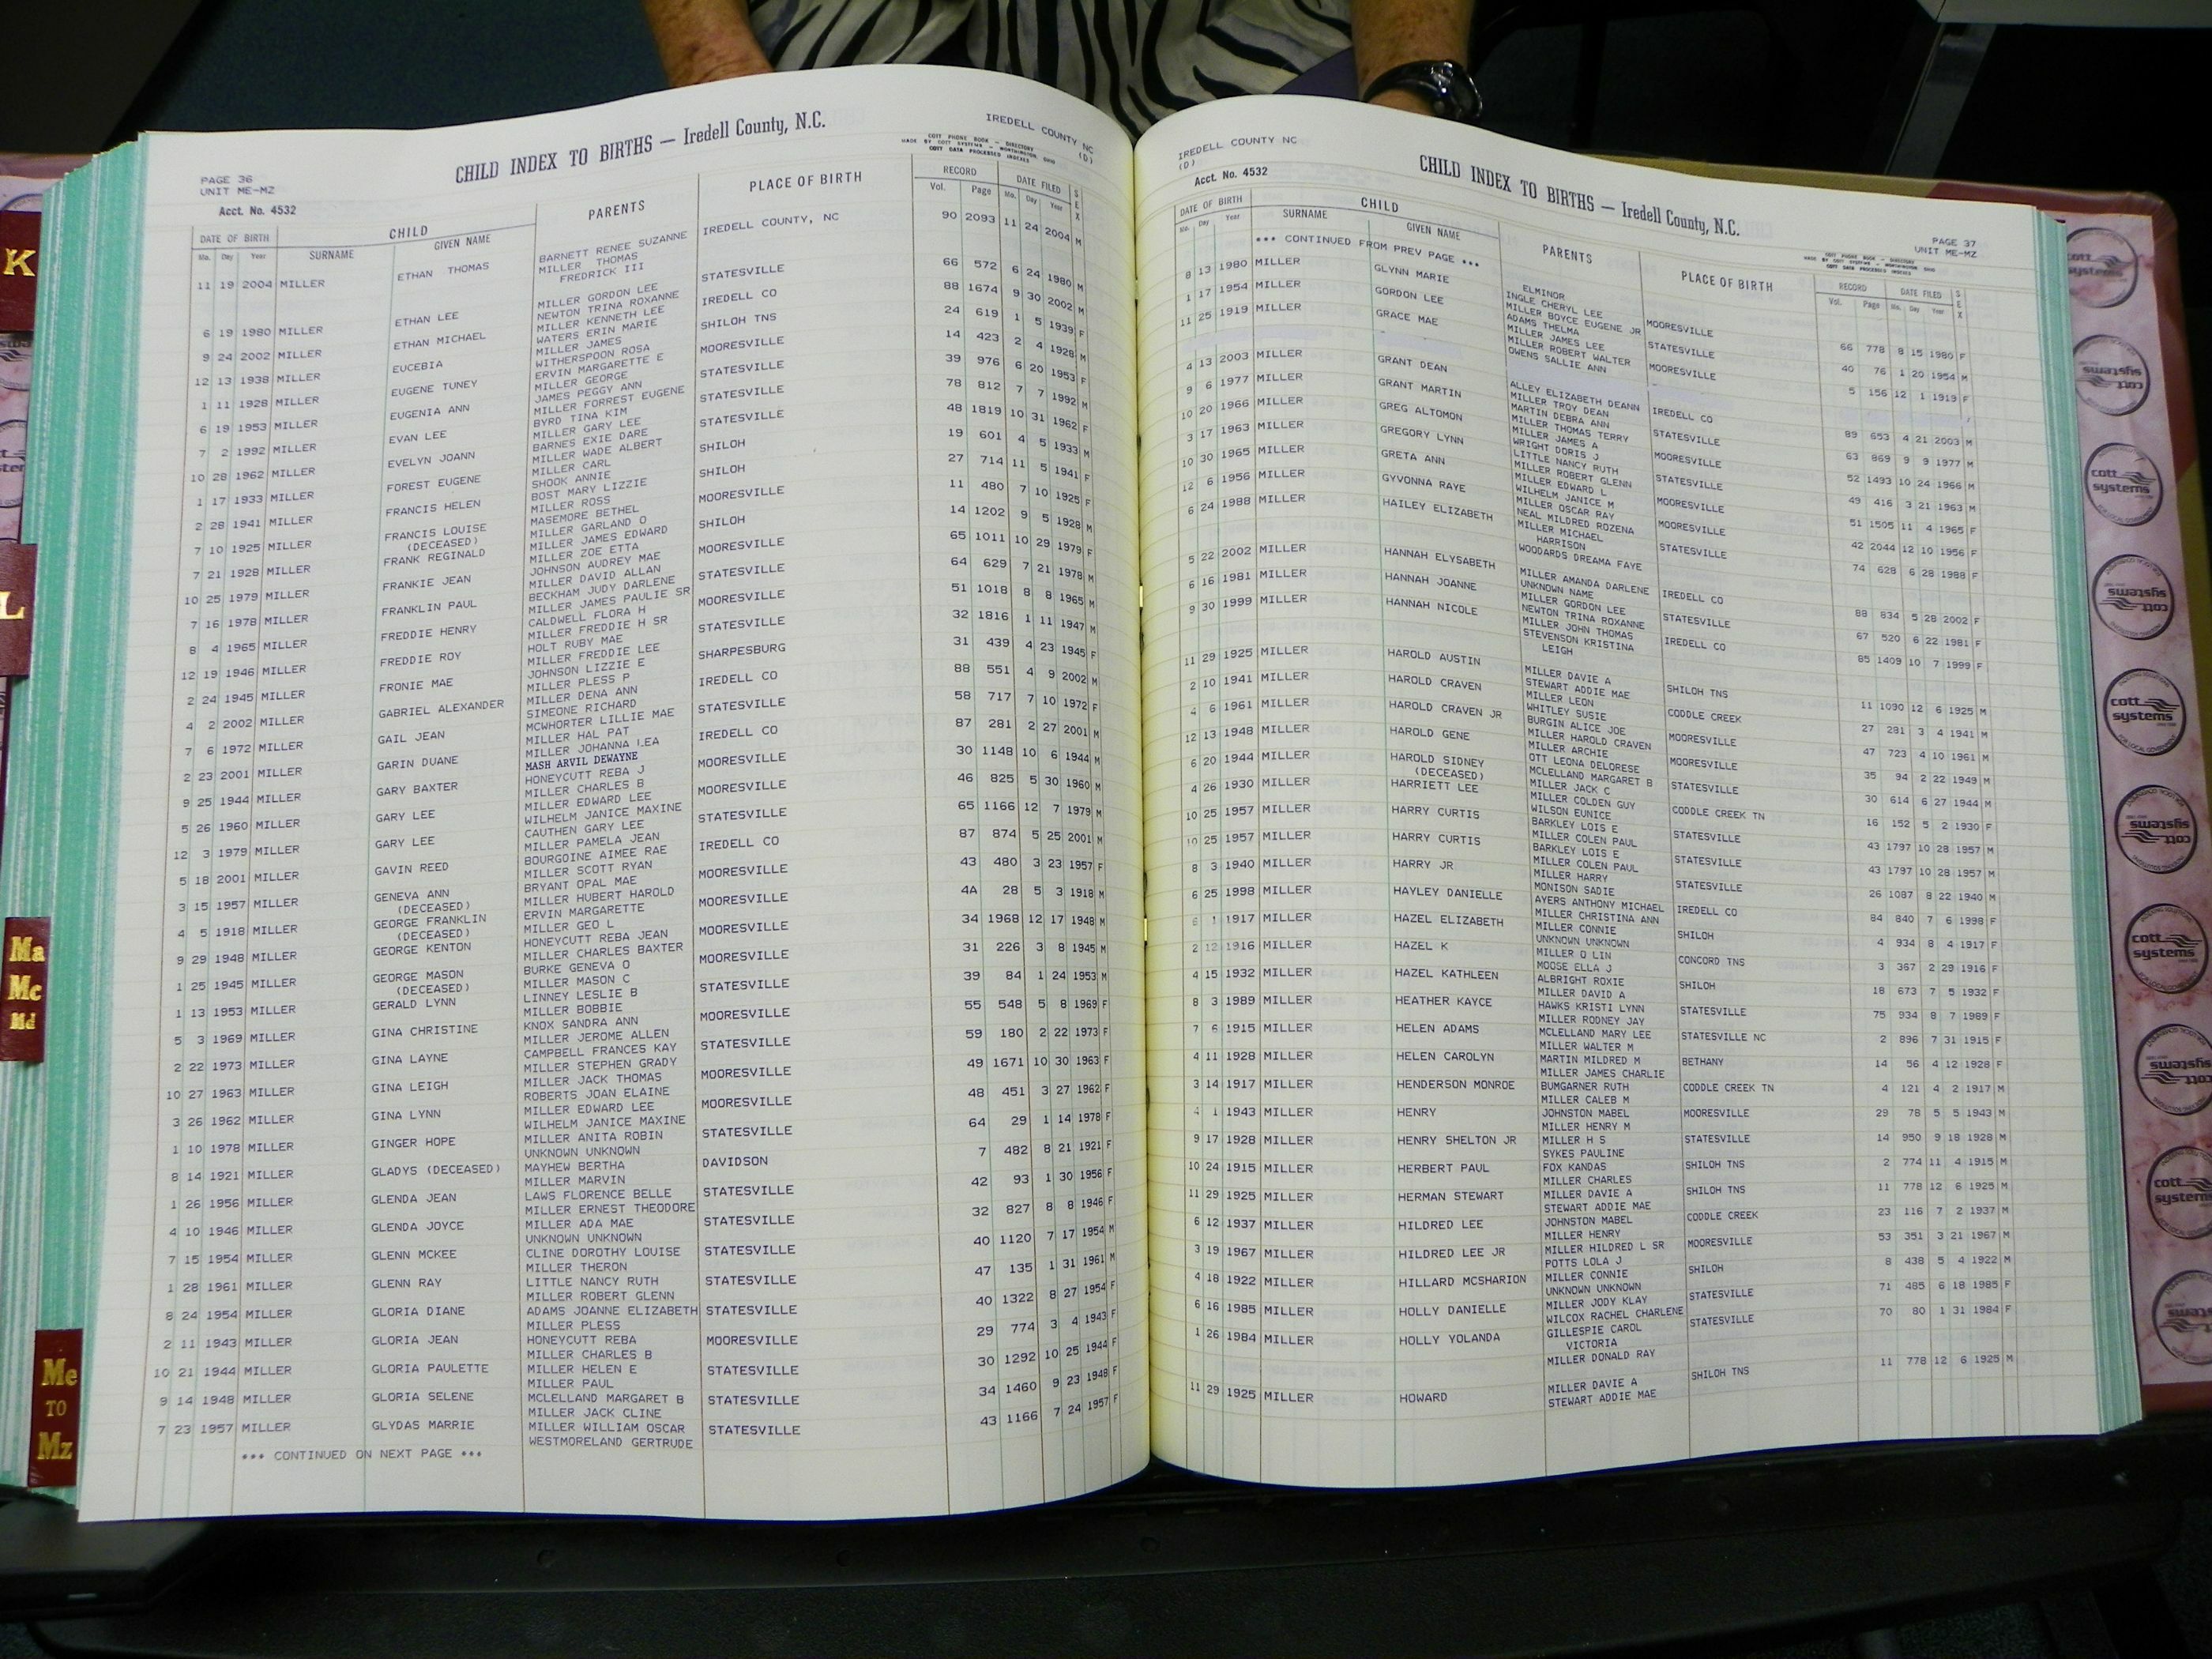 IREDELL COUNTY NC
(D)
CHILD INDEX TO BIRTHS — Iredell County, N.C.
COTT PHONE BOOK - DIRECTORY
MADE BY COTT SYSTEMS - WORTHINGTON, OHIO
COTT DATA PROCESSED INDEXES
PAGE 36
UNIT ME-MZ
Acct. No. 4532
DATE OF BIRTH CHILD PARENTS PLACE OF BIRTH RECORD DATE FILED SEX
Mo. Day Year SURNAME GIVEN NAME Vol. Page Mo. Day Year
11 19 2004 MILLER ETHAN THOMAS BARNETT RENEE SUZANNE IREDELL COUNTY, NC 90 2093 11 24 2004 M
MILLER THOMAS
FREDRICK III
6 19 1980 MILLER ETHAN LEE MILLER GORDON LEE STATESVILLE 66 572 6 24 1980 M
NEWTON TRINA ROXANNE
9 24 2002 MILLER ETHAN MICHAEL MILLER KENNETH LEE IREDELL CO 88 1674 9 30 2002 M
WATERS ERIN MARIE
12 13 1938 MILLER EUCEBIA MILLER JAMES SHILOH TNS 24 619 1 5 1939 F
WITHERSPOON ROSA
1 11 1928 MILLER EUGENE TUNEY ERVIN MARGARETTE E MOORESVILLE 14 423 2 4 1928 M
MILLER GEORGE
6 19 1953 MILLER EUGENIA ANN JAMES PEGGY ANN STATESVILLE 39 976 6 20 1953 F
MILLER FORREST EUGENE
7 2 1992 MILLER EVAN LEE BYRD TINA KIM STATESVILLE 78 812 7 7 1992 M
MILLER GARY LEE
10 28 1962 MILLER EVELYN JOANN BARNES EXIE DARE STATESVILLE 48 1819 10 31 1962 F
MILLER WADE ALBERT
1 17 1933 MILLER FOREST EUGENE MILLER CARL SHILOH 19 601 4 5 1933 M
SHOOK ANNIE
2 28 1941 MILLER FRANCIS HELEN BOST MARY LIZZIE SHILOH 27 714 11 5 1941 F
MILLER ROSS
7 10 1925 MILLER FRANCIS LOUISE MASEMORE BETHEL MOORESVILLE 11 480 7 10 1925 F
(DECEASED) MILLER GARLAND O
7 21 1928 MILLER FRANK REGINALD MILLER JAMES EDWARD SHILOH 14 1202 9 5 1928 M
MILLER ZOE ETTA
10 25 1979 MILLER FRANKIE JEAN JOHNSON AUDREY MAE MOORESVILLE 65 1011 10 29 1979 F
MILLER DAVID ALLAN
7 16 1978 MILLER FRANKLIN PAUL BECKHAM JUDY DARLENE STATESVILLE 64 629 7 21 1978 M
MILLER JAMES PAULIE SR
8 4 1965 MILLER FREDDIE HENRY CALDWELL FLORA H MOORESVILLE 51 1018 8 8 1965 M
MILLER FREDDIE H SR
12 19 1946 MILLER FREDDIE ROY HOLT RUBY MAE STATESVILLE 32 1816 1 11 1947 M
MILLER FREDDIE LEE
2 24 1945 MILLER FRONIE MAE JOHNSON LIZZIE E SHARPESBURG 31 439 4 23 1945 F
MILLER PLESS P
4 2 2002 MILLER GABRIEL ALEXANDER MILLER DENA ANN IREDELL CO 88 551 4 9 2002 M
SIMEONE RICHARD
7 6 1972 MILLER GAIL JEAN MCWHORTER LILLIE MAE STATESVILLE 58 717 7 10 1972 F
MILLER HAL PAT
2 23 2001 MILLER GARIN DUANE MILLER JOHANNA LEA IREDELL CO 87 281 2 27 2001 M
MASH ARVIL DEWAYNE
9 25 1944 MILLER GARY BAXTER HONEYCUTT REBA J MOORESVILLE 30 1148 10 6 1944 M
MILLER CHARLES B
5 26 1960 MILLER GARY LEE MILLER EDWARD LEE MOORESVILLE 46 825 5 30 1960 M
WILHELM JANICE MAXINE
12 3 1979 MILLER GARY LEE CAUTHEN GARY LEE STATESVILLE 65 1166 12 7 1979 M
MILLER PAMELA JEAN
5 18 2001 MILLER GAVIN REED BOURGOINE AIMEE RAE IREDELL CO 87 874 5 25 2001 M
MILLER SCOTT RYAN
3 15 1957 MILLER GENEVA ANN BRYANT OPAL MAE MOORESVILLE 43 480 3 23 1957 F
(DECEASED) MILLER HUBERT HAROLD
4 5 1918 MILLER GEORGE FRANKLIN ERVIN MARGARETTE MOORESVILLE 4A 28 5 3 1918 M
(DECEASED) MILLER GEO L
9 29 1948 MILLER GEORGE KENTON HONEYCUTT REBA JEAN MOORESVILLE 34 1968 12 17 1948 M
MILLER CHARLES BAXTER
1 25 1945 MILLER GEORGE MASON BURKE GENEVA O MOORESVILLE 31 226 3 8 1945 M
(DECEASED) MILLER MASON C
1 13 1953 MILLER GERALD LYNN LINNEY LESLIE B STATESVILLE 39 84 1 24 1953 M
MILLER BOBBIE
5 3 1969 MILLER GINA CHRISTINE KNOX SANDRA ANN MOORESVILLE 55 548 5 8 1969 F
MILLER JEROME ALLEN
2 22 1973 MILLER GINA LAYNE CAMPBELL FRANCES KAY STATESVILLE 59 180 2 22 1973 F
MILLER STEPHEN GRADY
10 27 1963 MILLER GINA LEIGH MILLER JACK THOMAS MOORESVILLE 49 1671 10 30 1963 F
ROBERTS JOAN ELAINE
3 26 1962 MILLER GINA LYNN MILLER EDWARD LEE MOORESVILLE 48 451 3 27 1962 F
WILHELM JANICE MAXINE
1 10 1978 MILLER GINGER HOPE MILLER ANITA ROBIN STATESVILLE 64 29 1 14 1978 F
UNKNOWN UNKNOWN
8 14 1921 MILLER GLADYS (DECEASED) MAYHEW BERTHA DAVIDSON 7 482 8 21 1921 F
MILLER MARVIN
1 26 1956 MILLER GLENDA JEAN LAWS FLORENCE BELLE STATESVILLE 42 93 1 30 1956 F
MILLER ERNEST THEODORE
4 10 1946 MILLER GLENDA JOYCE MILLER ADA MAE STATESVILLE 32 827 8 8 1946 F
UNKNOWN UNKNOWN
7 15 1954 MILLER GLENN MCKEE CLINE DOROTHY LOUISE STATESVILLE 40 1120 7 17 1954 M
MILLER THERON
1 28 1961 MILLER GLENN RAY LITTLE NANCY RUTH STATESVILLE 47 135 1 31 1961 M
MILLER ROBERT GLENN
8 24 1954 MILLER GLORIA DIANE ADAMS JOANNE ELIZABETH STATESVILLE 40 1322 8 27 1954 F
MILLER PLESS
2 11 1943 MILLER GLORIA JEAN HONEYCUTT REBA MOORESVILLE 29 774 3 4 1943 F
MILLER CHARLES B
10 21 1944 MILLER GLORIA PAULETTE MILLER HELEN E STATESVILLE 30 1292 10 25 1944 F
MILLER PAUL
9 14 1948 MILLER GLORIA SELENE MCLELLAND MARGARET B STATESVILLE 34 1460 9 23 1948 F
MILLER JACK CLINE
7 23 1957 MILLER GLYDAS MARRIE MILLER WILLIAM OSCAR STATESVILLE 43 1166 7 24 1957 F
WESTMORELAND GERTRUDE
*** CONTINUED ON NEXT PAGE ***
IREDELL COUNTY NC
(D)
Acct. No. 4532
CHILD INDEX TO BIRTHS — Iredell County, N.C.
PAGE 37
UNIT ME-MZ
COTT PHONE BOOK - DIRECTORY
MADE BY COTT SYSTEMS - WORTHINGTON, OHIO
COTT DATA PROCESSED INDEXES
DATE OF BIRTH CHILD PARENTS PLACE OF BIRTH RECORD DATE FILED SEX
Mo. Day Year SURNAME GIVEN NAME Vol. Page Mo. Day Year
*** CONTINUED FROM PREV PAGE ***
ELMINOR
8 13 1980 MILLER GLYNN MARIE INGLE CHERYL LEE MOORESVILLE 66 778 8 15 1980 F
MILLER BOYCE EUGENE JR
1 17 1954 MILLER GORDON LEE ADAMS THELMA STATESVILLE 40 76 1 20 1954 M
MILLER JAMES LEE
11 25 1919 MILLER GRACE MAE MILLER ROBERT WALTER MOORESVILLE 5 156 12 1 1919 F
OWENS SALLIE ANN
4 13 2003 MILLER GRANT DEAN ALLEY ELIZABETH DEANN IREDELL CO 89 653 4 21 2003 M
MILLER TROY DEAN
9 6 1977 MILLER GRANT MARTIN MARTIN DEBRA ANN STATESVILLE 63 869 9 9 1977 M
MILLER THOMAS TERRY
10 20 1966 MILLER GREG ALTOMON MILLER JAMES A MOORESVILLE 52 1493 10 24 1966 M
WRIGHT DORIS J
3 17 1963 MILLER GREGORY LYNN LITTLE NANCY RUTH STATESVILLE 49 416 3 21 1963 M
MILLER ROBERT GLENN
10 30 1965 MILLER GRETA ANN MILLER EDWARD L MOORESVILLE 51 1505 11 4 1965 F
WILHELM JANICE M
12 6 1956 MILLER GYVONNA RAYE MILLER OSCAR RAY MOORESVILLE 42 2044 12 10 1956 F
NEAL MILDRED ROZENA
6 24 1988 MILLER HAILEY ELIZABETH MILLER MICHAEL STATESVILLE 74 628 6 28 1988 F
HARRISON
WOODARDS DREAMA FAYE
5 22 2002 MILLER HANNAH ELYSABETH MILLER AMANDA DARLENE IREDELL CO 88 834 5 28 2002 F
UNKNOWN NAME
6 16 1981 MILLER HANNAH JOANNE MILLER GORDON LEE STATESVILLE 67 520 6 22 1981 F
NEWTON TRINA ROXANNE
9 30 1999 MILLER HANNAH NICOLE MILLER JOHN THOMAS IREDELL CO 85 1409 10 7 1999 F
STEVENSON KRISTINA
LEIGH
11 29 1925 MILLER HAROLD AUSTIN MILLER DAVIE A SHILOH TNS 11 1090 12 6 1925 M
STEWART ADDIE MAE
2 10 1941 MILLER HAROLD CRAVEN MILLER LEON CODDLE CREEK 27 281 3 4 1941 M
WHITLEY SUSIE
4 6 1961 MILLER HAROLD CRAVEN JR BURGIN ALICE JOE MOORESVILLE 47 723 4 10 1961 M
MILLER HAROLD CRAVEN
12 13 1948 MILLER HAROLD GENE MILLER ARCHIE MOORESVILLE 35 94 2 22 1949 M
OTT LEONA DELORESE
6 20 1944 MILLER HAROLD SIDNEY MCLELLAND MARGARET B STATESVILLE 30 614 6 27 1944 M
(DECEASED) MILLER JACK C
4 26 1930 MILLER HARRIETT LEE MILLER COLDEN GUY CODDLE CREEK TN 16 152 5 2 1930 F
WILSON EUNICE
10 25 1957 MILLER HARRY CURTIS BARKLEY LOIS E STATESVILLE 43 1797 10 28 1957 M
MILLER COLEN PAUL
10 25 1957 MILLER HARRY CURTIS BARKLEY LOIS E STATESVILLE 43 1797 10 28 1957 M
MILLER COLEN PAUL
8 3 1940 MILLER HARRY JR MILLER HARRY STATESVILLE 26 1087 8 22 1940 M
MONISON SADIE
6 25 1998 MILLER HAYLEY DANIELLE AYERS ANTHONY MICHAEL IREDELL CO 84 840 7 6 1998 F
MILLER CHRISTINA ANN
6 1 1917 MILLER HAZEL ELIZABETH MILLER CONNIE SHILOH 4 934 8 4 1917 F
UNKNOWN UNKNOWN
2 12 1916 MILLER HAZEL K MILLER O LIN CONCORD TNS 3 367 2 29 1916 F
MOOSE ELLA J
4 15 1932 MILLER HAZEL KATHLEEN ALBRIGHT ROXIE SHILOH 18 673 7 5 1932 F
MILLER DAVID A
8 3 1989 MILLER HEATHER KAYCE HAWKS KRISTI LYNN STATESVILLE 75 934 8 7 1989 F
MILLER RODNEY JAY
7 6 1915 MILLER HELEN ADAMS MCLELLAND MARY LEE STATESVILLE NC 2 896 7 31 1915 F
MILLER WALTER M
4 11 1928 MILLER HELEN CAROLYN MARTIN MILDRED M BETHANY 14 56 4 12 1928 F
MILLER JAMES CHARLIE
3 14 1917 MILLER HENDERSON MONROE BUMGARNER RUTH CODDLE CREEK TN 4 121 4 2 1917 M
MILLER CALEB M
4 1 1943 MILLER HENRY JOHNSTON MABEL MOORESVILLE 29 78 5 5 1943 M
MILLER HENRY M
9 17 1928 MILLER HENRY SHELTON JR MILLER H S STATESVILLE 14 950 9 18 1928 M
SYKES PAULINE
10 24 1915 MILLER HERBERT PAUL FOX KANDAS SHILOH TNS 2 774 11 4 1915 M
MILLER CHARLES
11 29 1925 MILLER HERMAN STEWART MILLER DAVIE A SHILOH TNS 11 778 12 6 1925 M
STEWART ADDIE MAE
6 12 1937 MILLER HILDRED LEE JOHNSTON MABEL CODDLE CREEK 23 116 7 2 1937 M
MILLER HENRY
3 19 1967 MILLER HILDRED LEE JR MILLER HILDRED L SR MOORESVILLE 53 351 3 21 1967 M
POTTS LOLA J
4 18 1922 MILLER HILLARD MCSHARION MILLER CONNIE SHILOH 8 438 5 4 1922 M
UNKNOWN UNKNOWN
6 16 1985 MILLER HOLLY DANIELLE MILLER JODY KLAY STATESVILLE 71 485 6 18 1985 F
WILCOX RACHEL CHARLENE
1 26 1984 MILLER HOLLY YOLANDA GILLESPIE CAROL STATESVILLE 70 80 1 31 1984 F
VICTORIA
MILLER DONALD RAY
11 29 1925 MILLER HOWARD MILLER DAVIE A SHILOH TNS 11 778 12 6 1925 M
STEWART ADDIE MAE
K
L
Ma
Mc
Md
Me
TO
Mz
cott systems
cott systems
cott systems
cott systems
cott systems